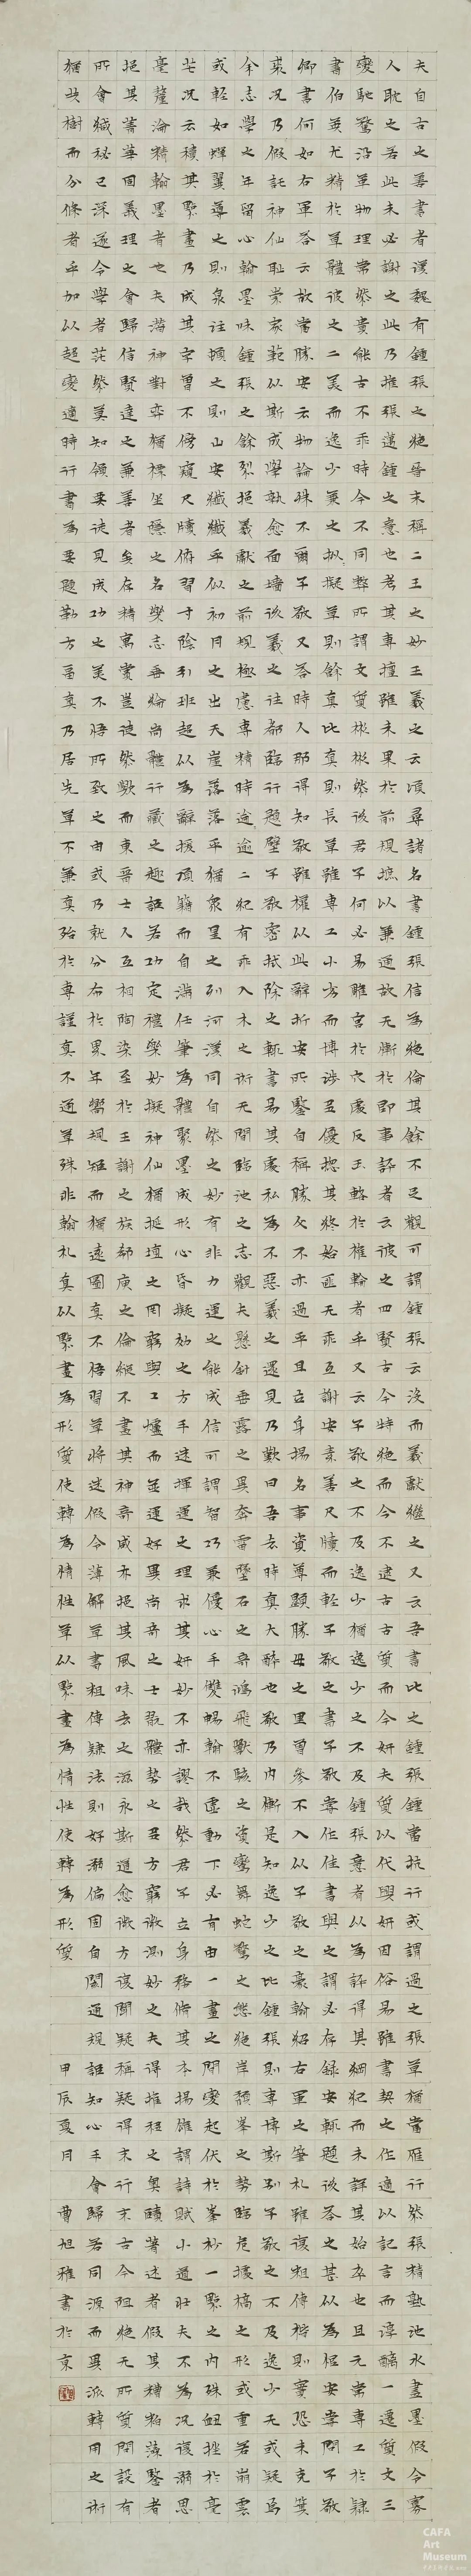 夫自古之善書者漢魏有鍾張之絕晉末稱二王之妙王羲之云頃尋諸名書鍾張信為絕倫其餘不足觀可謂鍾張云沒而羲獻繼之又云吾書比之鍾張鍾當抗行或謂過之張草猶當雁行然張精熟池水盡墨假令寡
人耽之若此未必謝之此乃推張邁鍾之意也考其專擅雖未果於前規摭以兼通故无慚於即事評者云彼之四賢古今特絕而今不逮古古質而今妍夫質以代興妍因俗易雖書契之作適以記言而淳醨一遷質文三
變馳騖沿革物理常然貴能古不乖時今不同弊所謂文質彬彬然後君子何必易雕宮於穴處反玉輅於椎輪者乎又云子敬之不及逸少猶逸少之不及鍾張意者以為評得其綱紀而未詳其始卒也且元常專工於隸
書伯英尤精於草體彼之二美而逸少兼之擬草則餘真比真則長草雖專工小劣而博涉多優揔其終始匪无乖互謝安素善尺牘而輕子敬之書子敬嘗作佳書與之謂必存録安輒題後答之甚以為恨安嘗問子敬
卿書何如右軍答云故當勝安云物論殊不爾子敬又答時人那得知敬雖權以此辭折安所鑒自稱勝父不亦過乎且立身揚名事資尊顯勝母之里曾參不入以子敬之豪翰紹右軍之筆札雖復粗傳楷則實恐未克箕
裘況乃假託神仙恥崇家範以斯成學孰愈面墻後羲之往都臨行題壁子敬密拭除之輒書易其處私為不惡羲之還見乃歎曰吾去時真大醉也敬乃內慚是知逸少之比鍾張則專博斯別子敬之不及逸少无或疑焉
余志學之年留心翰墨味鍾張之餘烈挹羲獻之前規極慮專精時逾二紀有乖入木之術无間臨池之志觀夫懸針垂露之異奔雷墜石之奇鴻飛獸駭之資鸞舞蛇驚之態絕岸頹峯之勢臨危據槁之形或重若崩雲
或輕如蟬翼導之則泉注頓之則山安纖纖乎似初月之出天崖落落乎猶眾星之列河漢同自然之妙有非力運之能成信可謂智巧兼優心手雙暢翰不虛動下必有由一畫之間變起伏於峯杪一點之內殊衄挫於毫
芒況云積其點畫乃成其字曾不傍窺尺牘俯習寸陰引班超以為辭援項籍而自滿任筆為體聚墨成形心昏擬效之方手迷揮運之理求其妍妙不亦謬哉然君子立身務修其本揚雄謂詩賦小道壯夫不為況復溺思
毫釐淪精翰墨者也夫潛神對弈猶標坐隱之名樂志垂綸尚體行藏之趣詎若功定禮樂妙擬神仙猶埏埴之罔窮與工爐而並運好異尚奇之士翫體勢之多方窮微測妙之夫得推移之奧賾著述者假其糟粕藻鑒者
挹其菁華固義理之會歸信賢達之兼善者矣存精寓賞豈徒然歟而東晉士人互相陶染至於王謝之族郗庾之倫縱不盡其神奇咸亦挹其風味去之滋永斯道愈微方復聞疑稱疑得末行末古今阻絕无所質問設有
所會緘秘已深遂令學者茫然莫知領要徒見成功之美不悟所致之由或乃就分布於累年嚮規矩而猶遠圖真不悟習草將迷假令薄解草書粗傳隸法則好溺偏固自閡通規詎知心手會歸若同源而異派轉用之術
猶共樹而分條者乎加以趨變適時行書為要題勒方畐真乃居先草不兼真殆於專謹真不通草殊非翰札真以點畫為形質使轉為情性草以點畫為情性使轉為形質
甲辰夏月 曹旭雅書於京
CAFA
Art
Museum